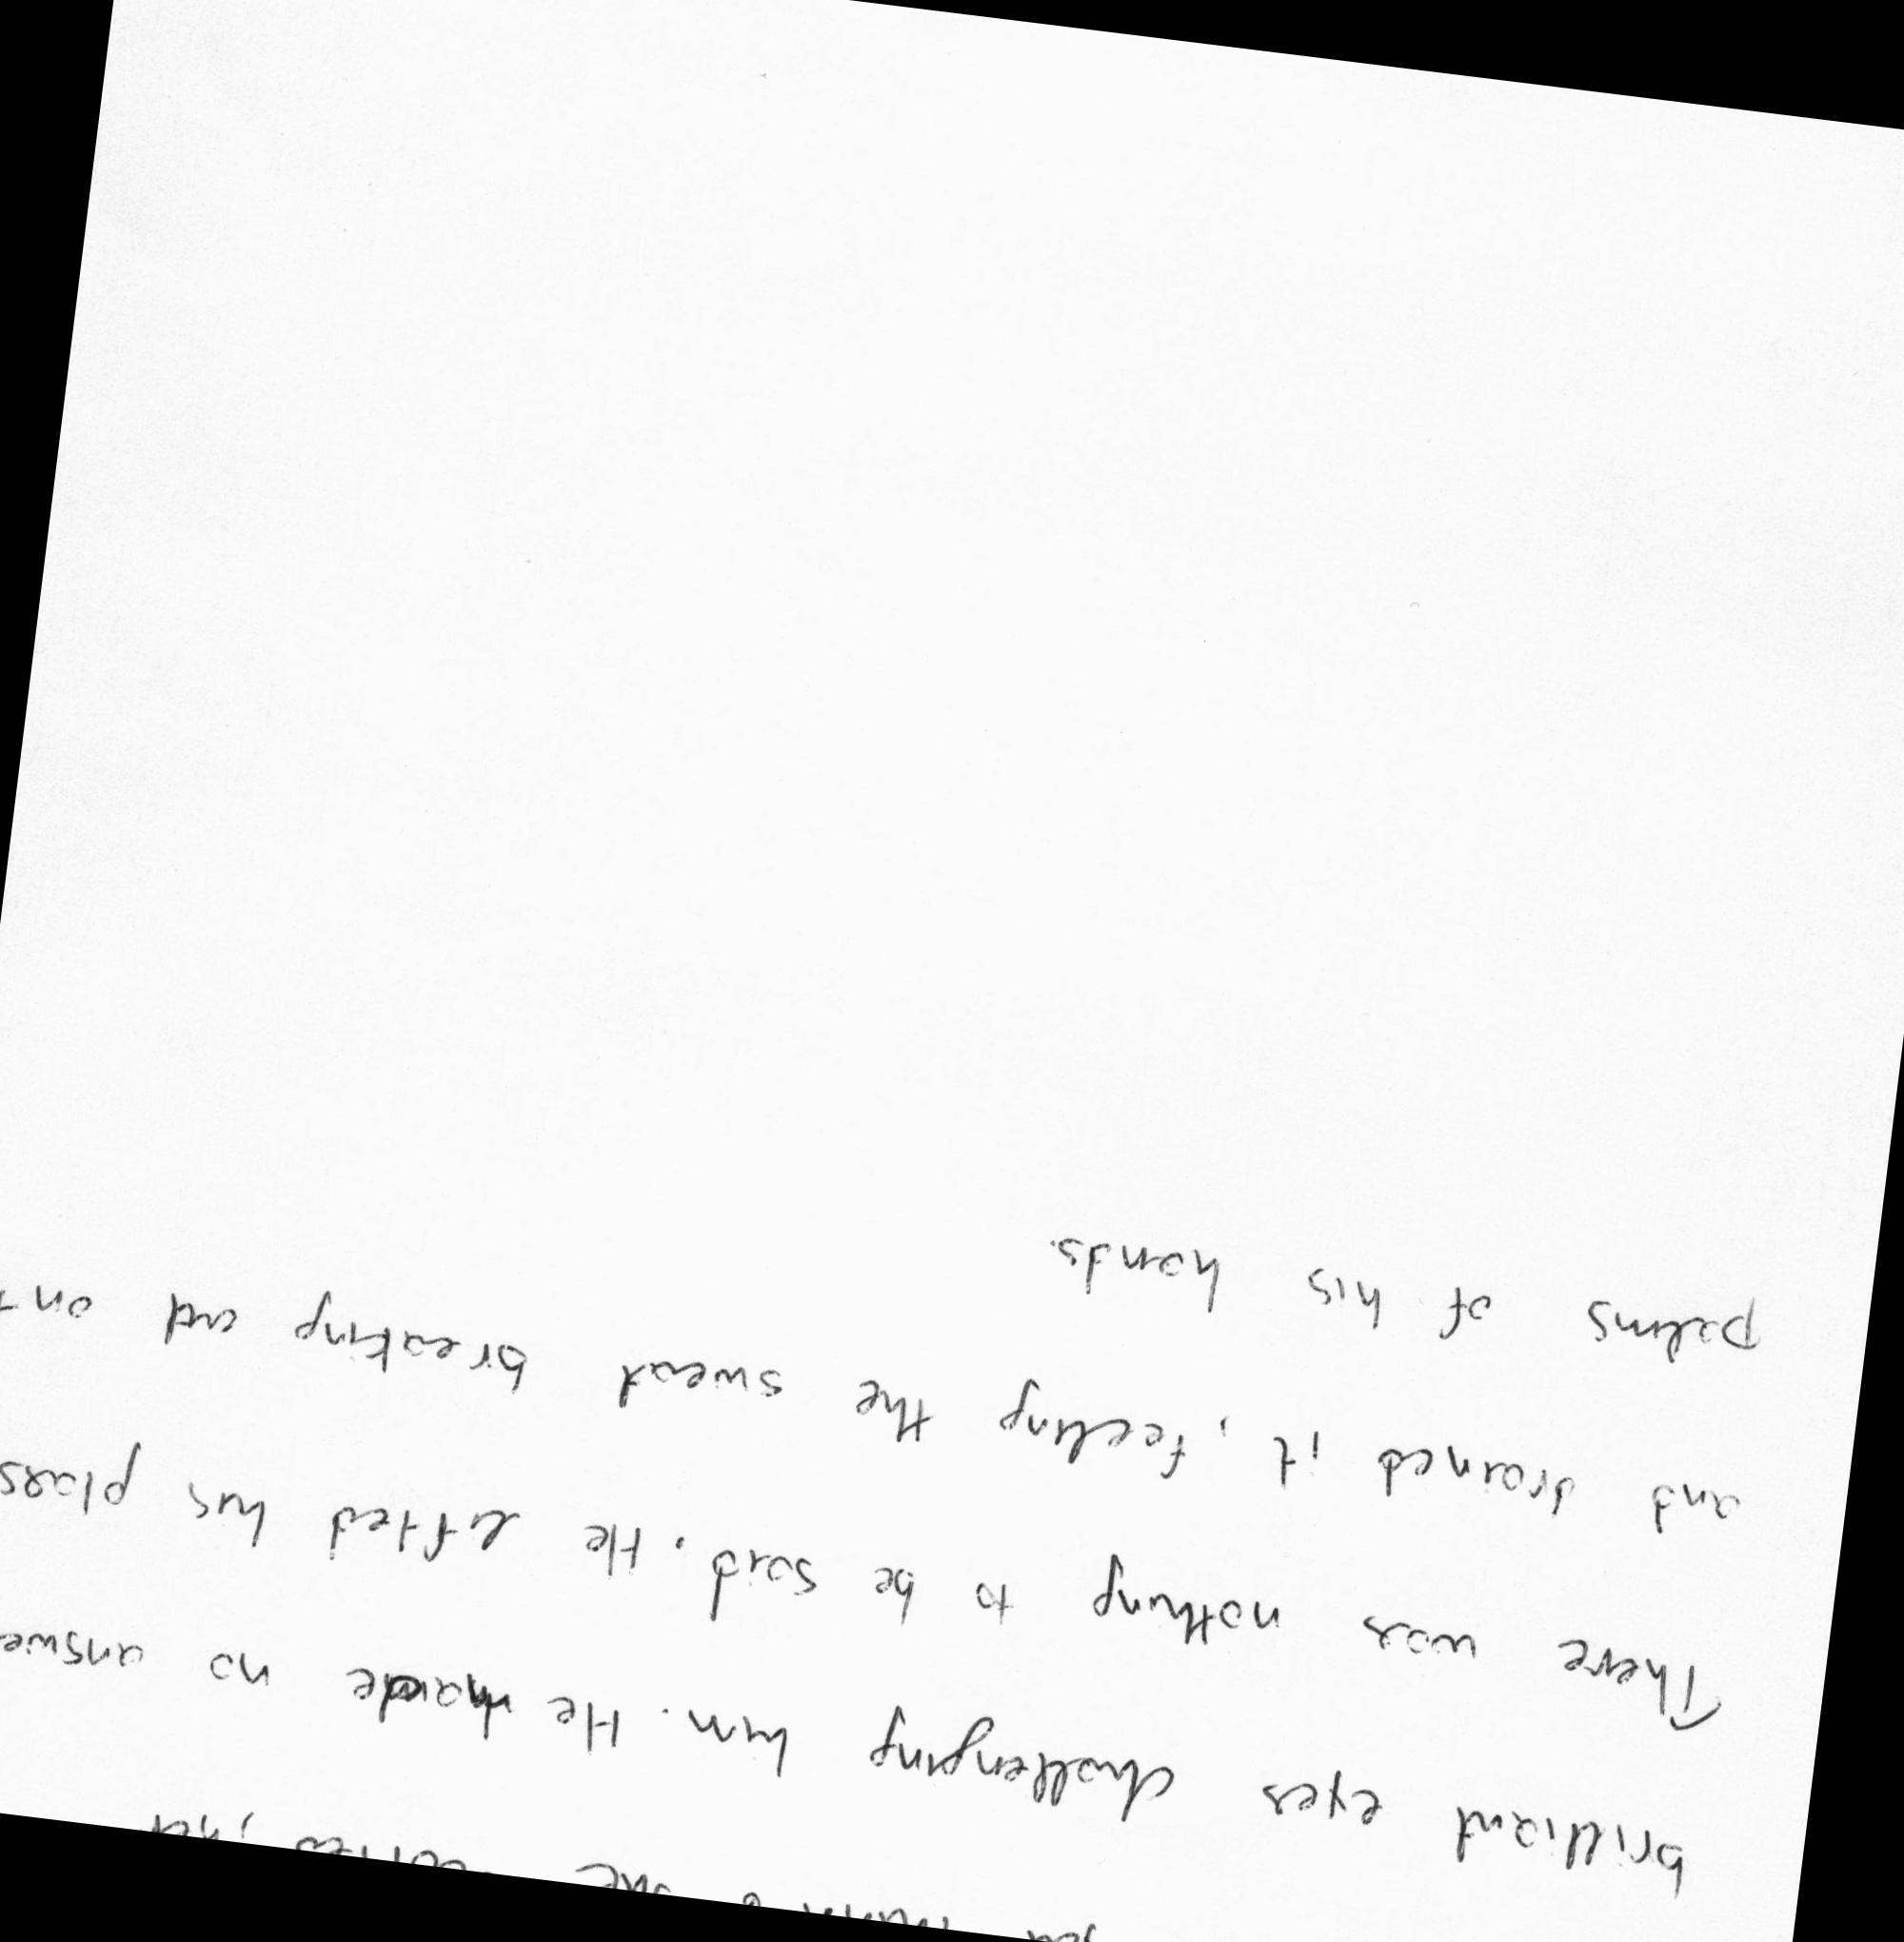 she
brilliant eyes challenging him. He made no answe
There was nothing to be said. He lifted his glass
and drained it, feeling the sweat breaking out on
palms of his hands.